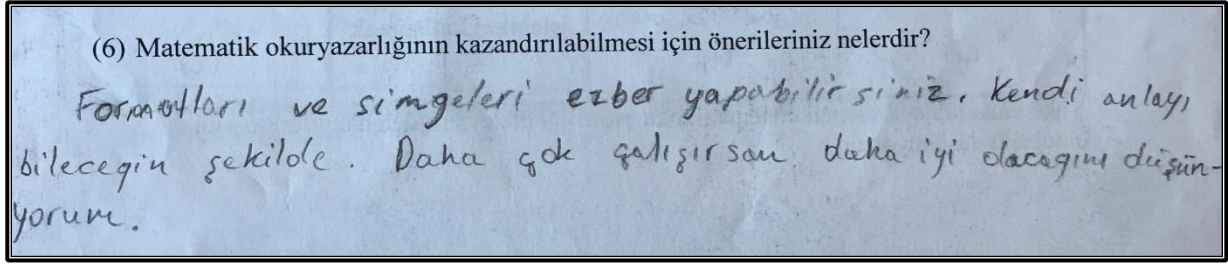 (6) Matematik okuryazarlığının kazandırılabilmesi için önerileriniz nelerdir?
Formatları ve simgeleri ezber yapabilirsiniz. Kendi anlayı
bilecegin şekilde. Daha çok çalışırsan daha iyi olacagını düşün-
yorum.